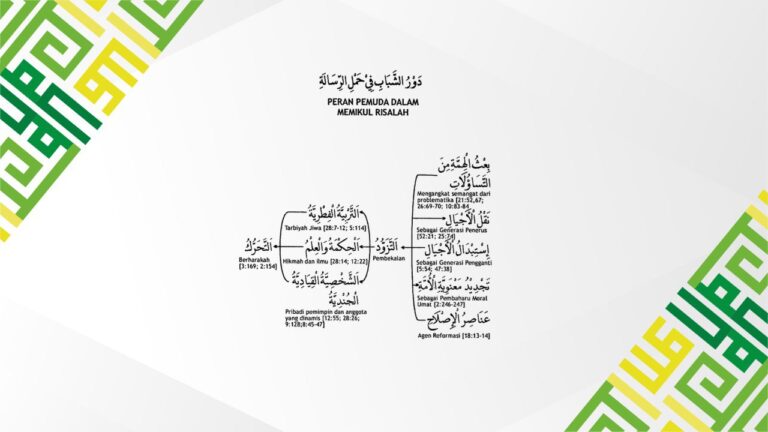 دَوْرُ الشَّبَابِ فِيْ حَمْلِ الرِّسَالَةِ
PERAN PEMUDA DALAM
MEMIKUL RISALAH
بِعْثُ الْهِمَّةِ مِنَ
التَّسَاؤُلَاتِ
Mengangkat semangat dari
problematika [21:52,67;
26:69-70; 10:83-84
نَقْلُ الْأَجْيَالِ
Sebagai Generasi Penerus
[52:21; 25:74]
إِسْتِبْدَالُ الْأَجْيَالِ
Sebagai Generasi Pengganti
[5:54; 47:38]
تَجْدِيْدُ مَعْنَوِيَّةِ الْأُمَّةِ
Sebagai Pembuharu Moral
Umat [2:246-247]
عَنَاصِرُ الْإِصْلَاحِ
Agen Reformasi [18:13-14]
اَلتَّزَوُّدُ
Pembekalan
اَلتَّرْبِيَّةُ الْفِطْرِيَّةُ
Tarbiyah Jiwa [28:7-12; 5:114]
اَلْحِكْمَةُ وَالْعِلْمُ
Hikmah dan Ilmu [28:14; 12:22]
اَلشَّخْصِيَّةُ الْقِيَادِيَّةُ
الْجُنْدِيَّةُ
Pribadi pemimpin dan anggota
yang dinamis [12:55; 28:26;
9:128;8:45-47]
اَلتَّحَرُّكُ
Berharakah
[3:169; 2:154]